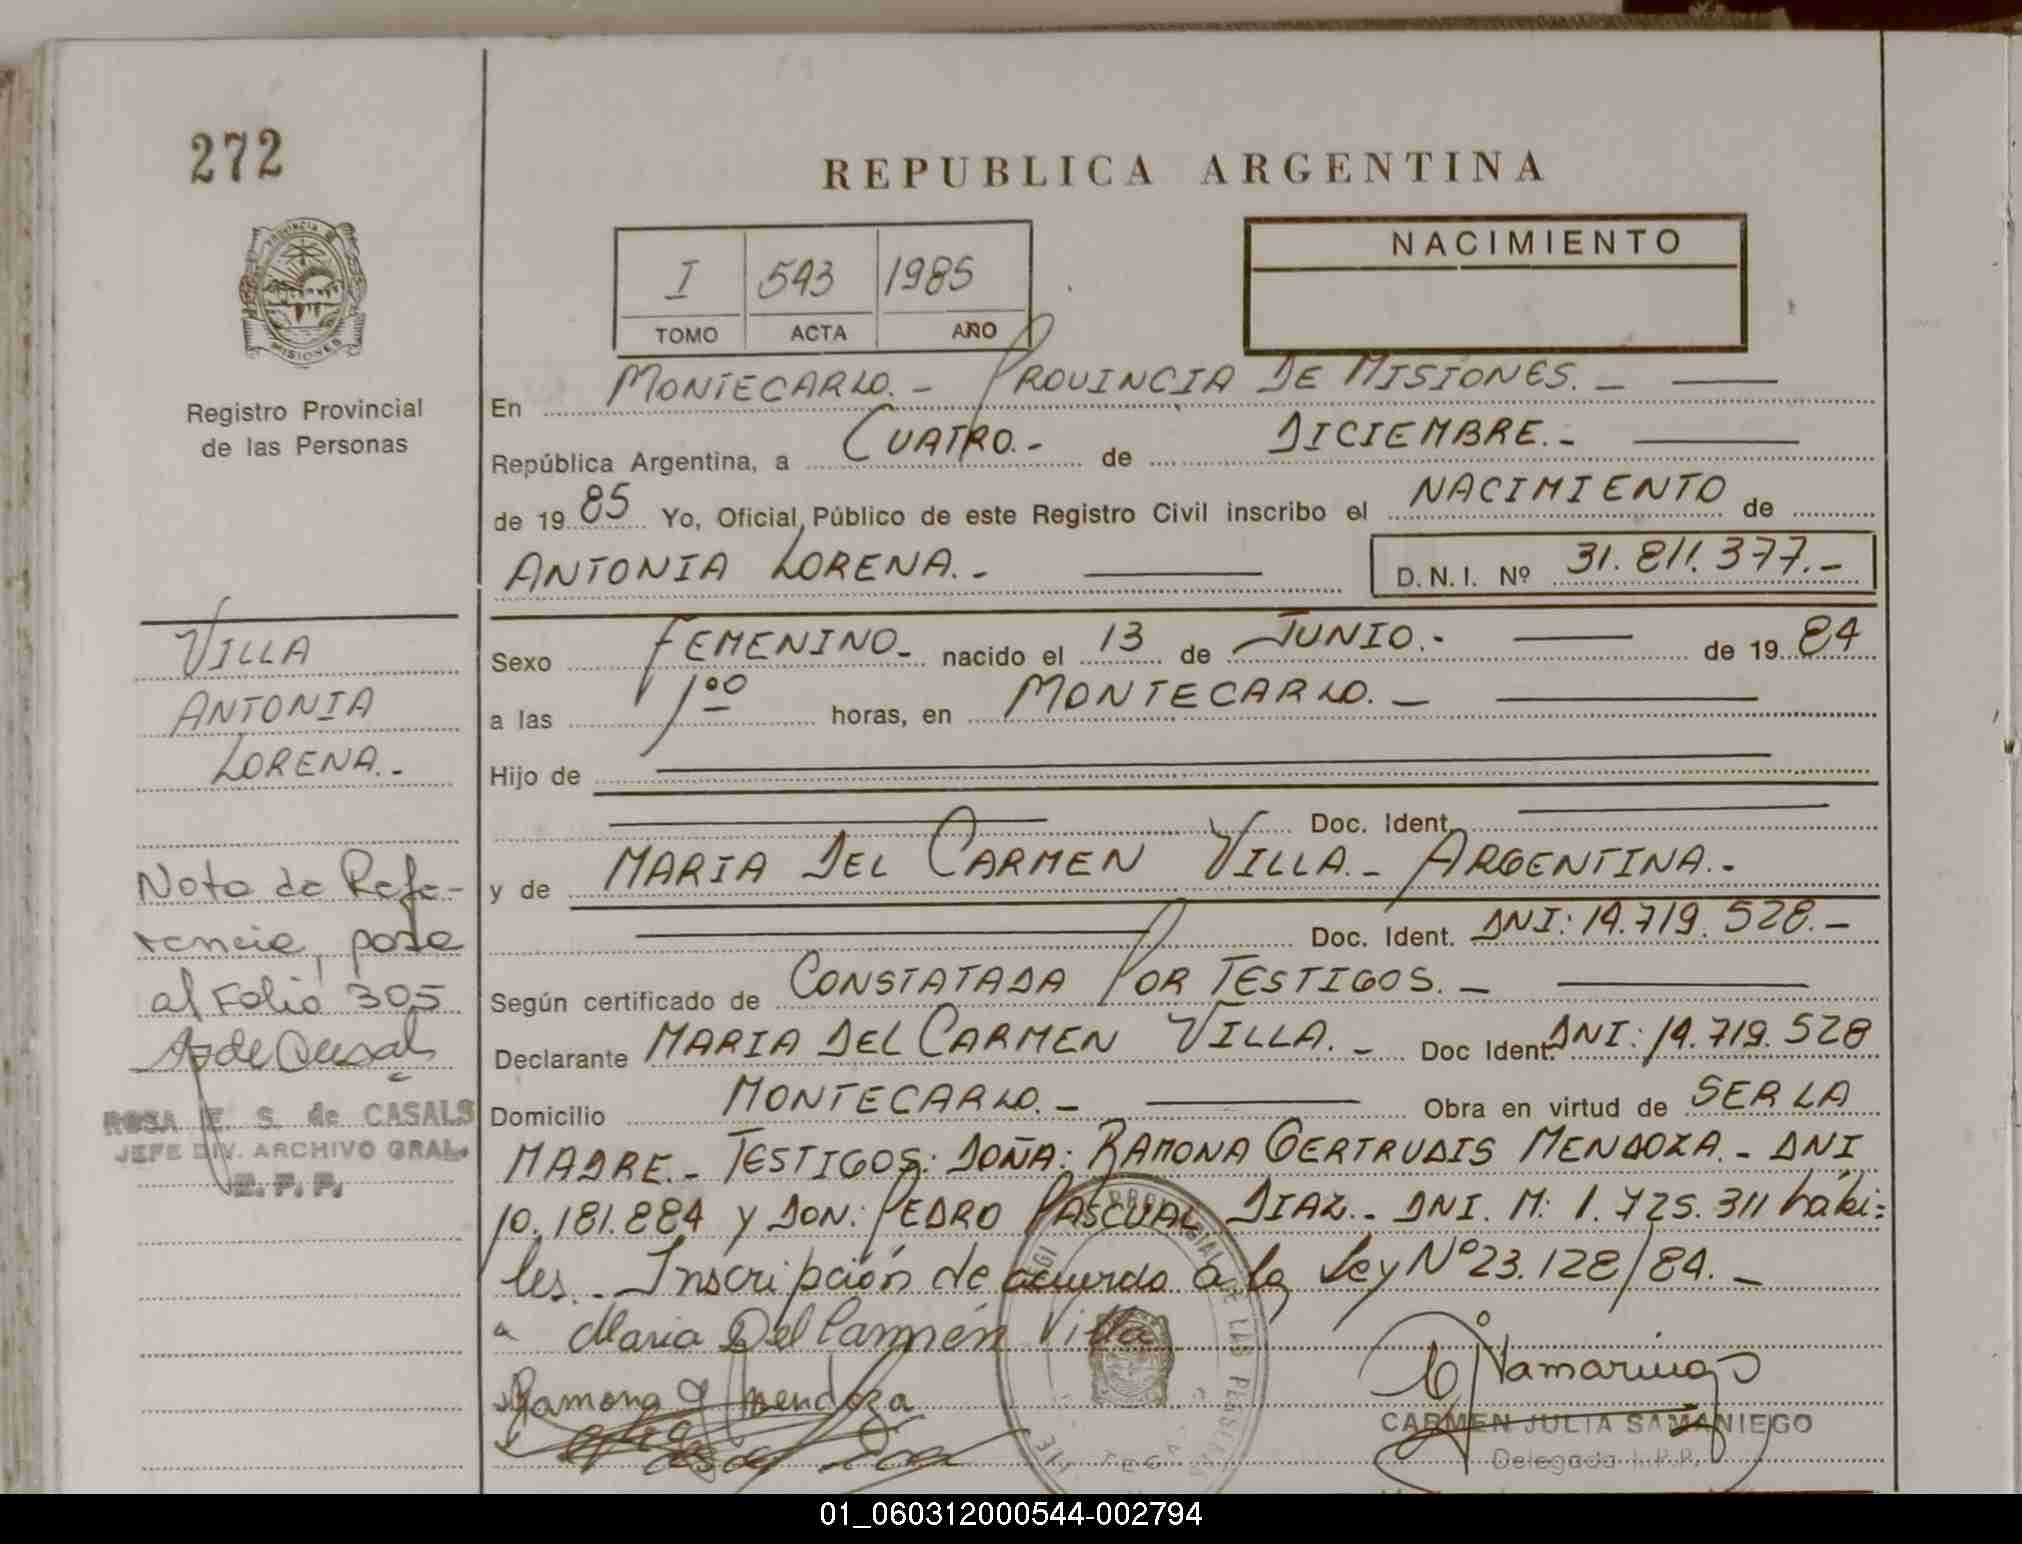 272
REPUBLICA ARGENTINA
PROVINCIA DE
MISIONES
Registro Provincial
de las Personas
I 543 1985
TOMO ACTA AÑO
NACIMIENTO
En MONTECARLO.- PROVINCIA DE MISIONES.-
República Argentina, a CUATRO.- de DICIEMBRE.-
de 19 85 Yo, Oficial Público de este Registro Civil inscribo el NACIMIENTO de
ANTONIA LORENA.- D.N.I. Nº 31.811.377.-
Sexo FEMENINO- nacido el 13 de JUNIO.- de 19 84
a las 1⁰⁰ horas, en MONTECARLO.-
Hijo de
Doc. Ident.
y de MARIA DEL CARMEN VILLA.- ARGENTINA.-
Doc. Ident. DNI: 14.719.528.-
Según certificado de CONSTATADA POR TESTIGOS.-
Declarante MARIA DEL CARMEN VILLA.- Doc Ident. DNI: 14.719.528
Domicilio MONTECARLO.- Obra en virtud de SER LA
MADRE.- TESTIGOS: DOÑA: RAMONA GERTRUDIS MENDOZA.- DNI
10.181.884 y DON: PEDRO PASCUAL DIAZ.- DNI. M: 1.725.311 hábi=
les.- Inscripción de acuerdo a la Ley Nº 23.128/84.-
Maria Del Carmen Villa
Ramona G Mendoza
CARMEN JULIA SAMANIEGO
Delegada R.P.P.
VILLA
ANTONIA
LORENA.-
Nota de Refe-
rencia, pasa
al Folio 305
ROSA E. S. de CASALS
JEFE DIV. ARCHIVO GRAL.
R. P. P.
01_060312000544-002794